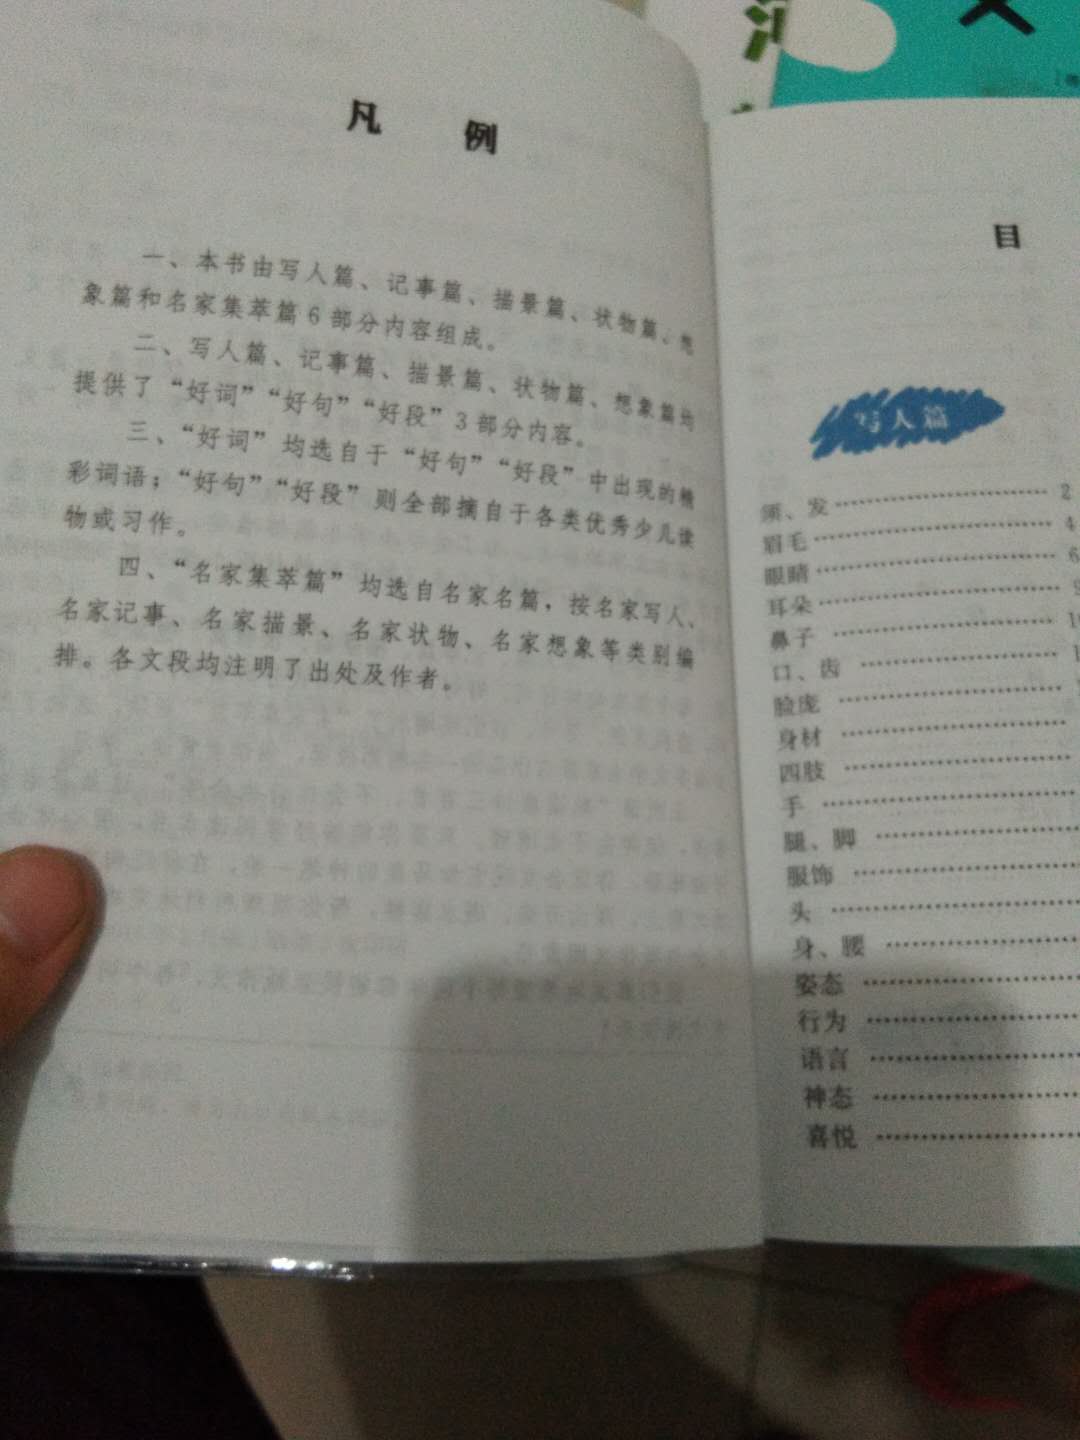 凡 例
一、本书由写人篇、记事篇、描景篇、状物篇、想
象篇和名家集萃篇6部分内容组成。
二、写人篇、记事篇、描景篇、状物篇、想象篇均
提供了“好词”“好句”“好段”3部分内容。
三、“好词”均选自于“好句”“好段”中出现的精
彩词语；“好句”“好段”则全部摘自于各类优秀少儿读
物或习作。
四、“名家集萃篇”均选自名家名篇，按名家写人、
名家记事、名家描景、名家状物、名家想象等类别编
排。各文段均注明了出处及作者。
目
写人篇
须、发 2
眉毛 4
眼睛 6
耳朵 9
鼻子
口、齿
脸庞
身材
四肢
手
腿、脚
服饰
头
身、腰
姿态
行为
语言
神态
喜悦